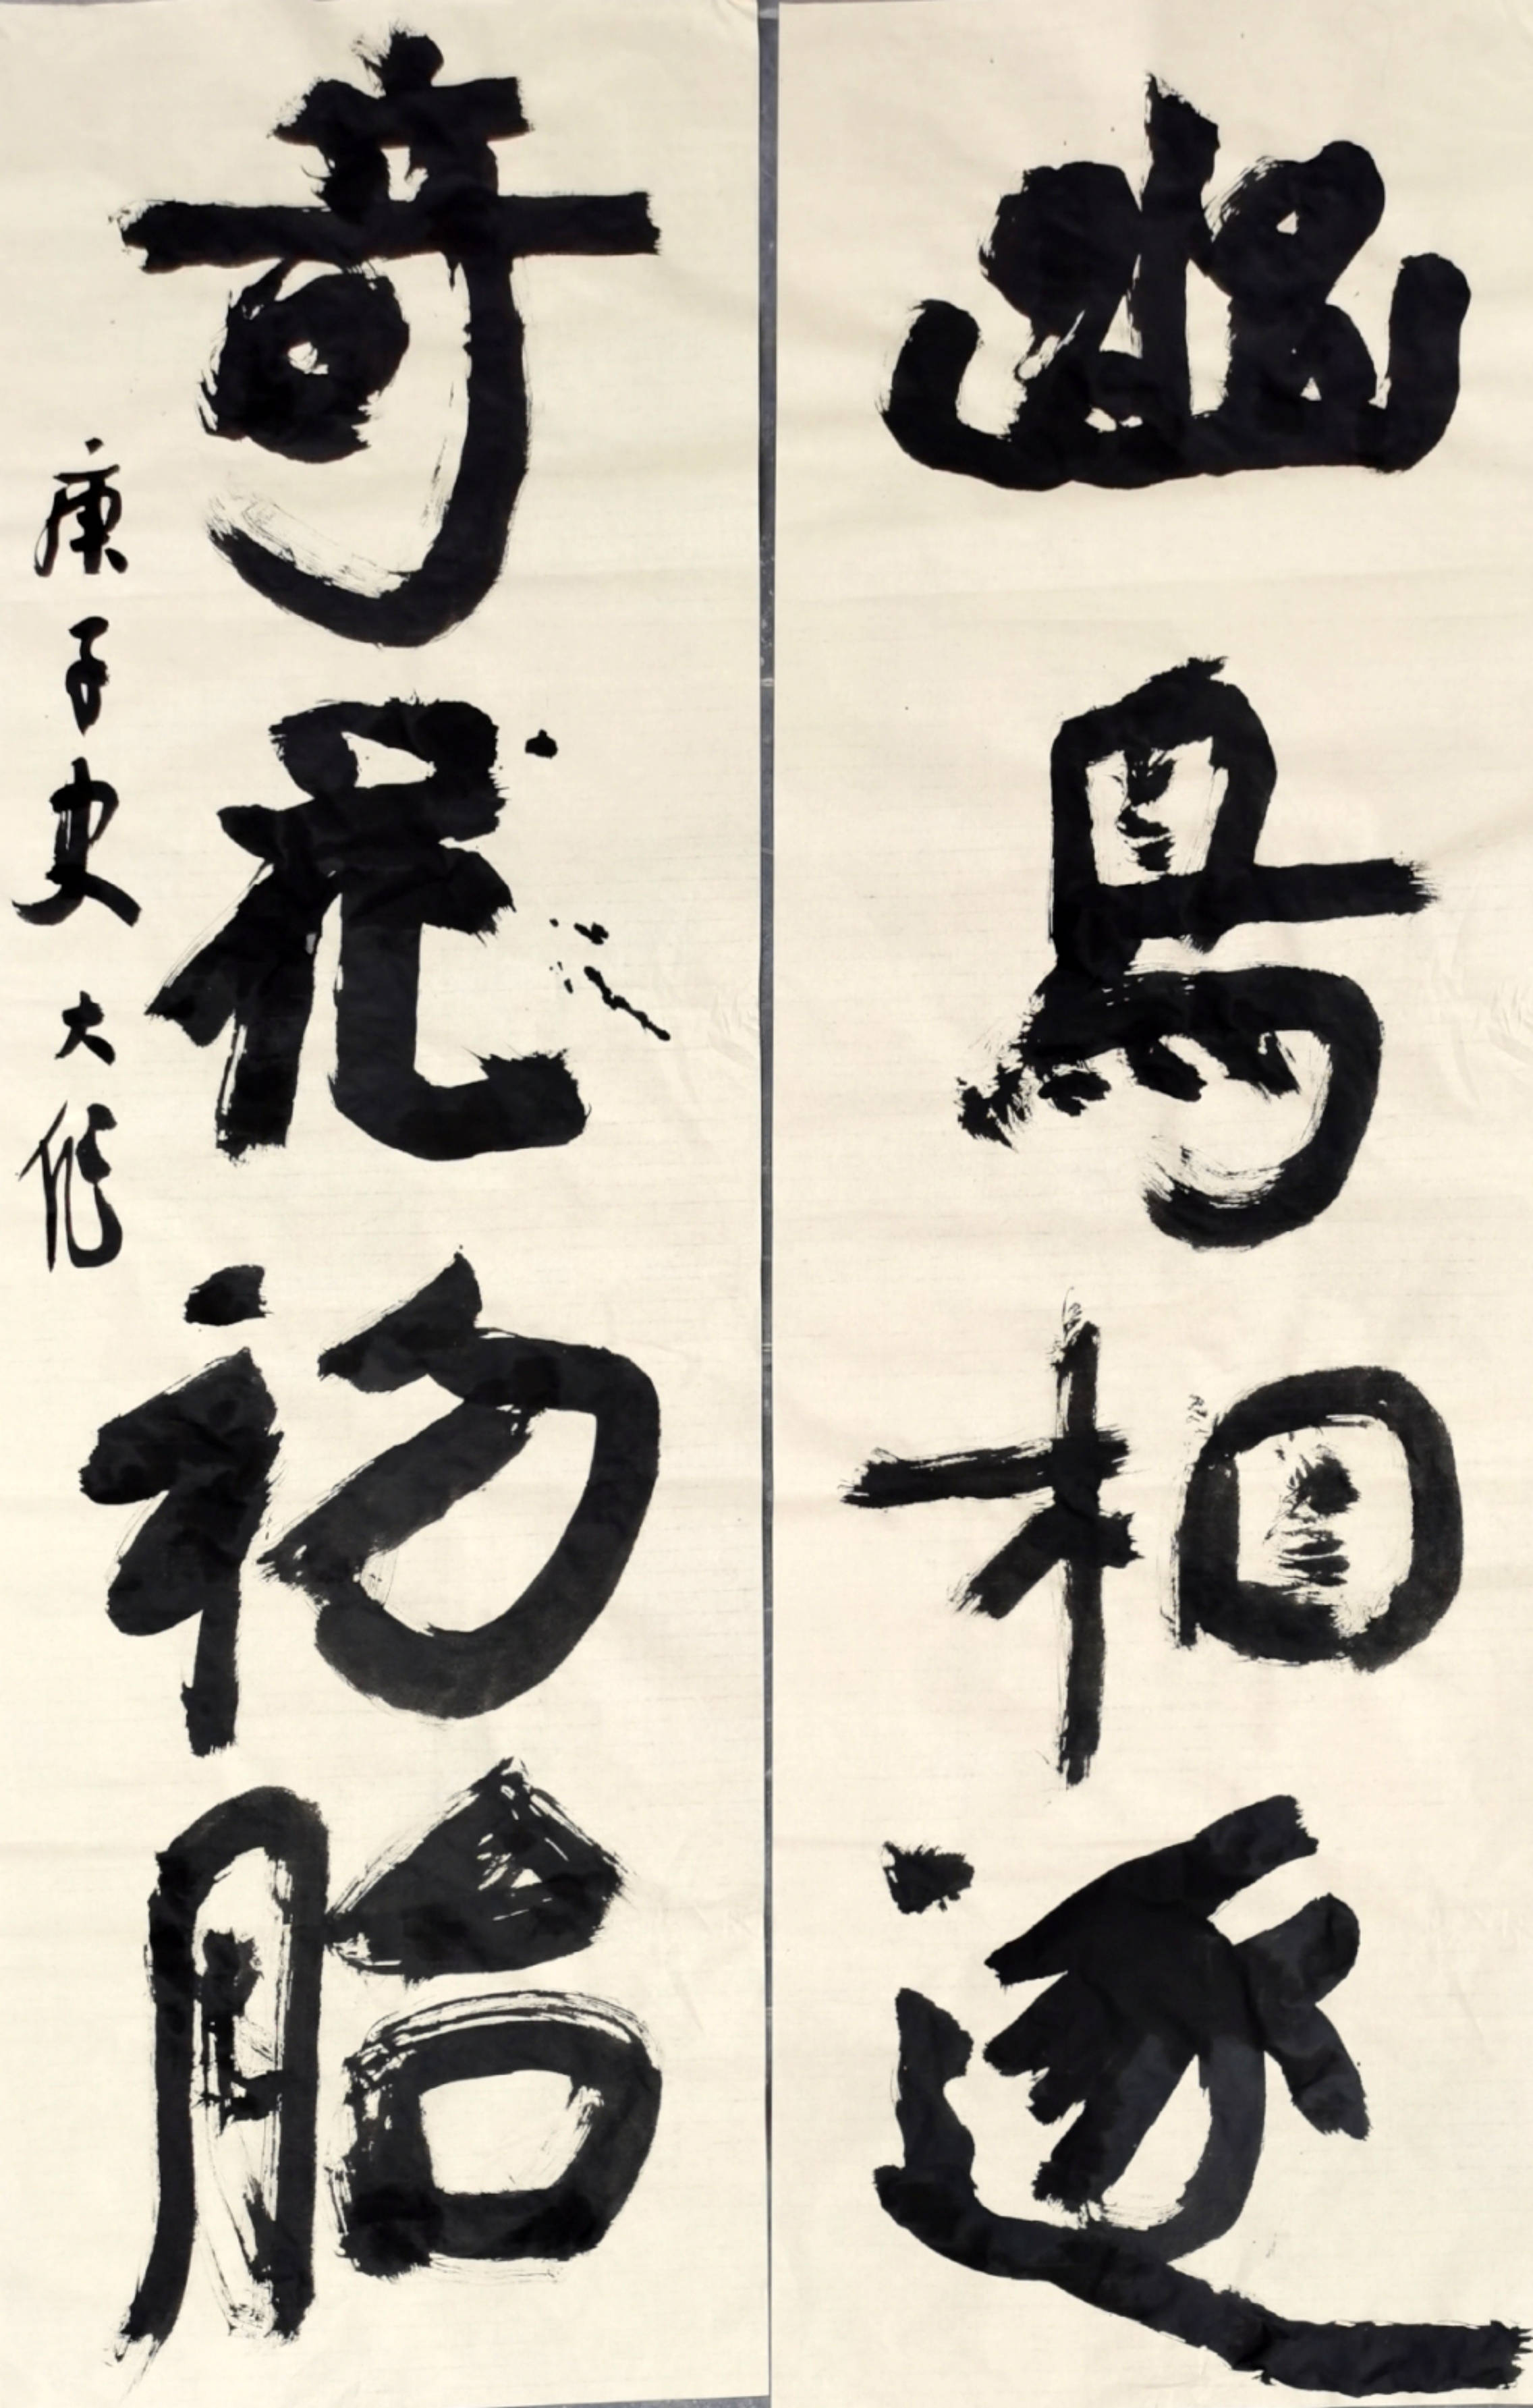 幽鳥相逐
奇花初胎
庚子史大作